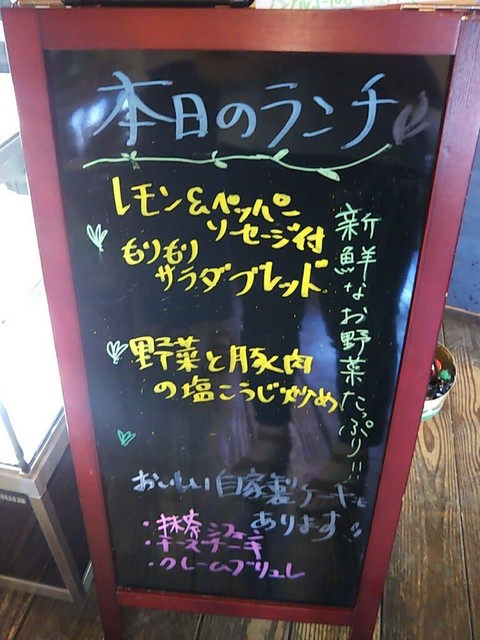 本日のランチ
レモン&ペッパー
ソーセージ付
もりもり
サラダブレッド
新鮮なお野菜たっぷり!!
野菜と豚肉
の塩こうじ炒め
おいしい自家製ケーキも
あります!!
・抹茶シフォン
・チーズケーキ
・クレームブリュレ